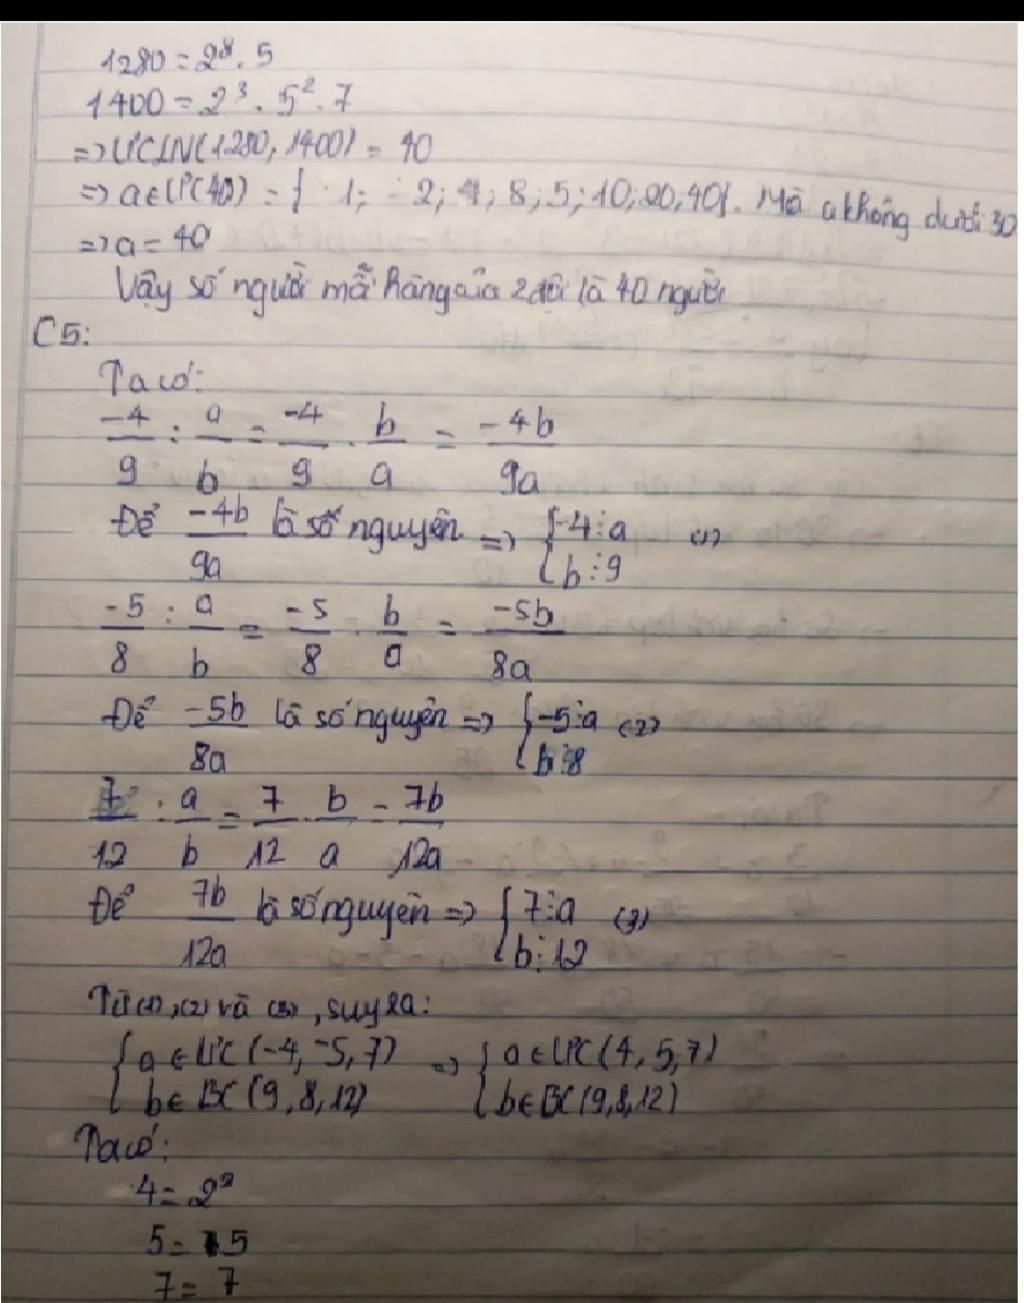 1280 = 2⁸ . 5
1400 = 2³ . 5² . 7
=> ƯCLN(1280, 1400) = 40
=> a ∈ ƯC(40) = { 1; 2; 4; 8; 5; 10; 20; 40}. Mà a không dưới 30
=> a = 40
Vậy số người mỗi hàng của 2 đội là 40 người
C5:
Ta có:
-4/9 : a/b = -4/9 . b/a = -4b/9a
Để -4b/9a là số nguyên => { -4 ⋮ a (1)
b ⋮ 9
-5/8 : a/b = -5/8 . b/a = -5b/8a
Để -5b/8a là số nguyên => { -5 ⋮ a (2)
b ⋮ 8
7/12 : a/b = 7/12 . b/a = 7b/12a
Để 7b/12a là số nguyên => { 7 ⋮ a (3)
b ⋮ 12
Từ (1), (2) và (3), suy ra:
{ a ∈ ƯC (-4, -5, 7) => { a ∈ ƯC (4, 5, 7)
b ∈ BC (9, 8, 12) b ∈ BC (9, 8, 12)
Ta có:
4 = 2²
5 = 5
7 = 7